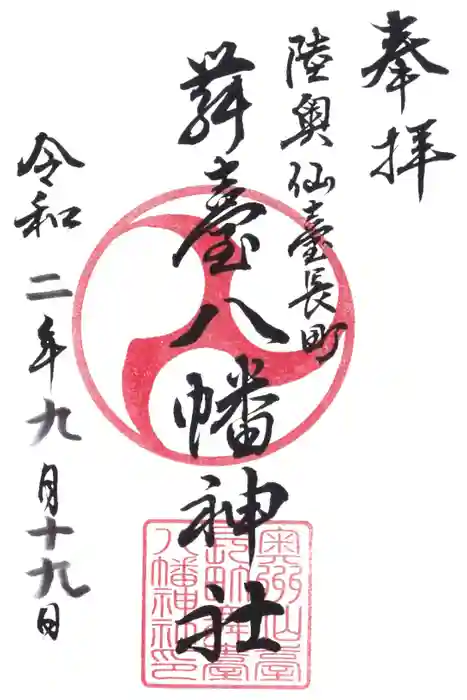 奉拝
陸奥仙臺長町
舞臺八幡神社
令和二年九月十九日
奥州仙臺
長町舞臺
八幡神社印